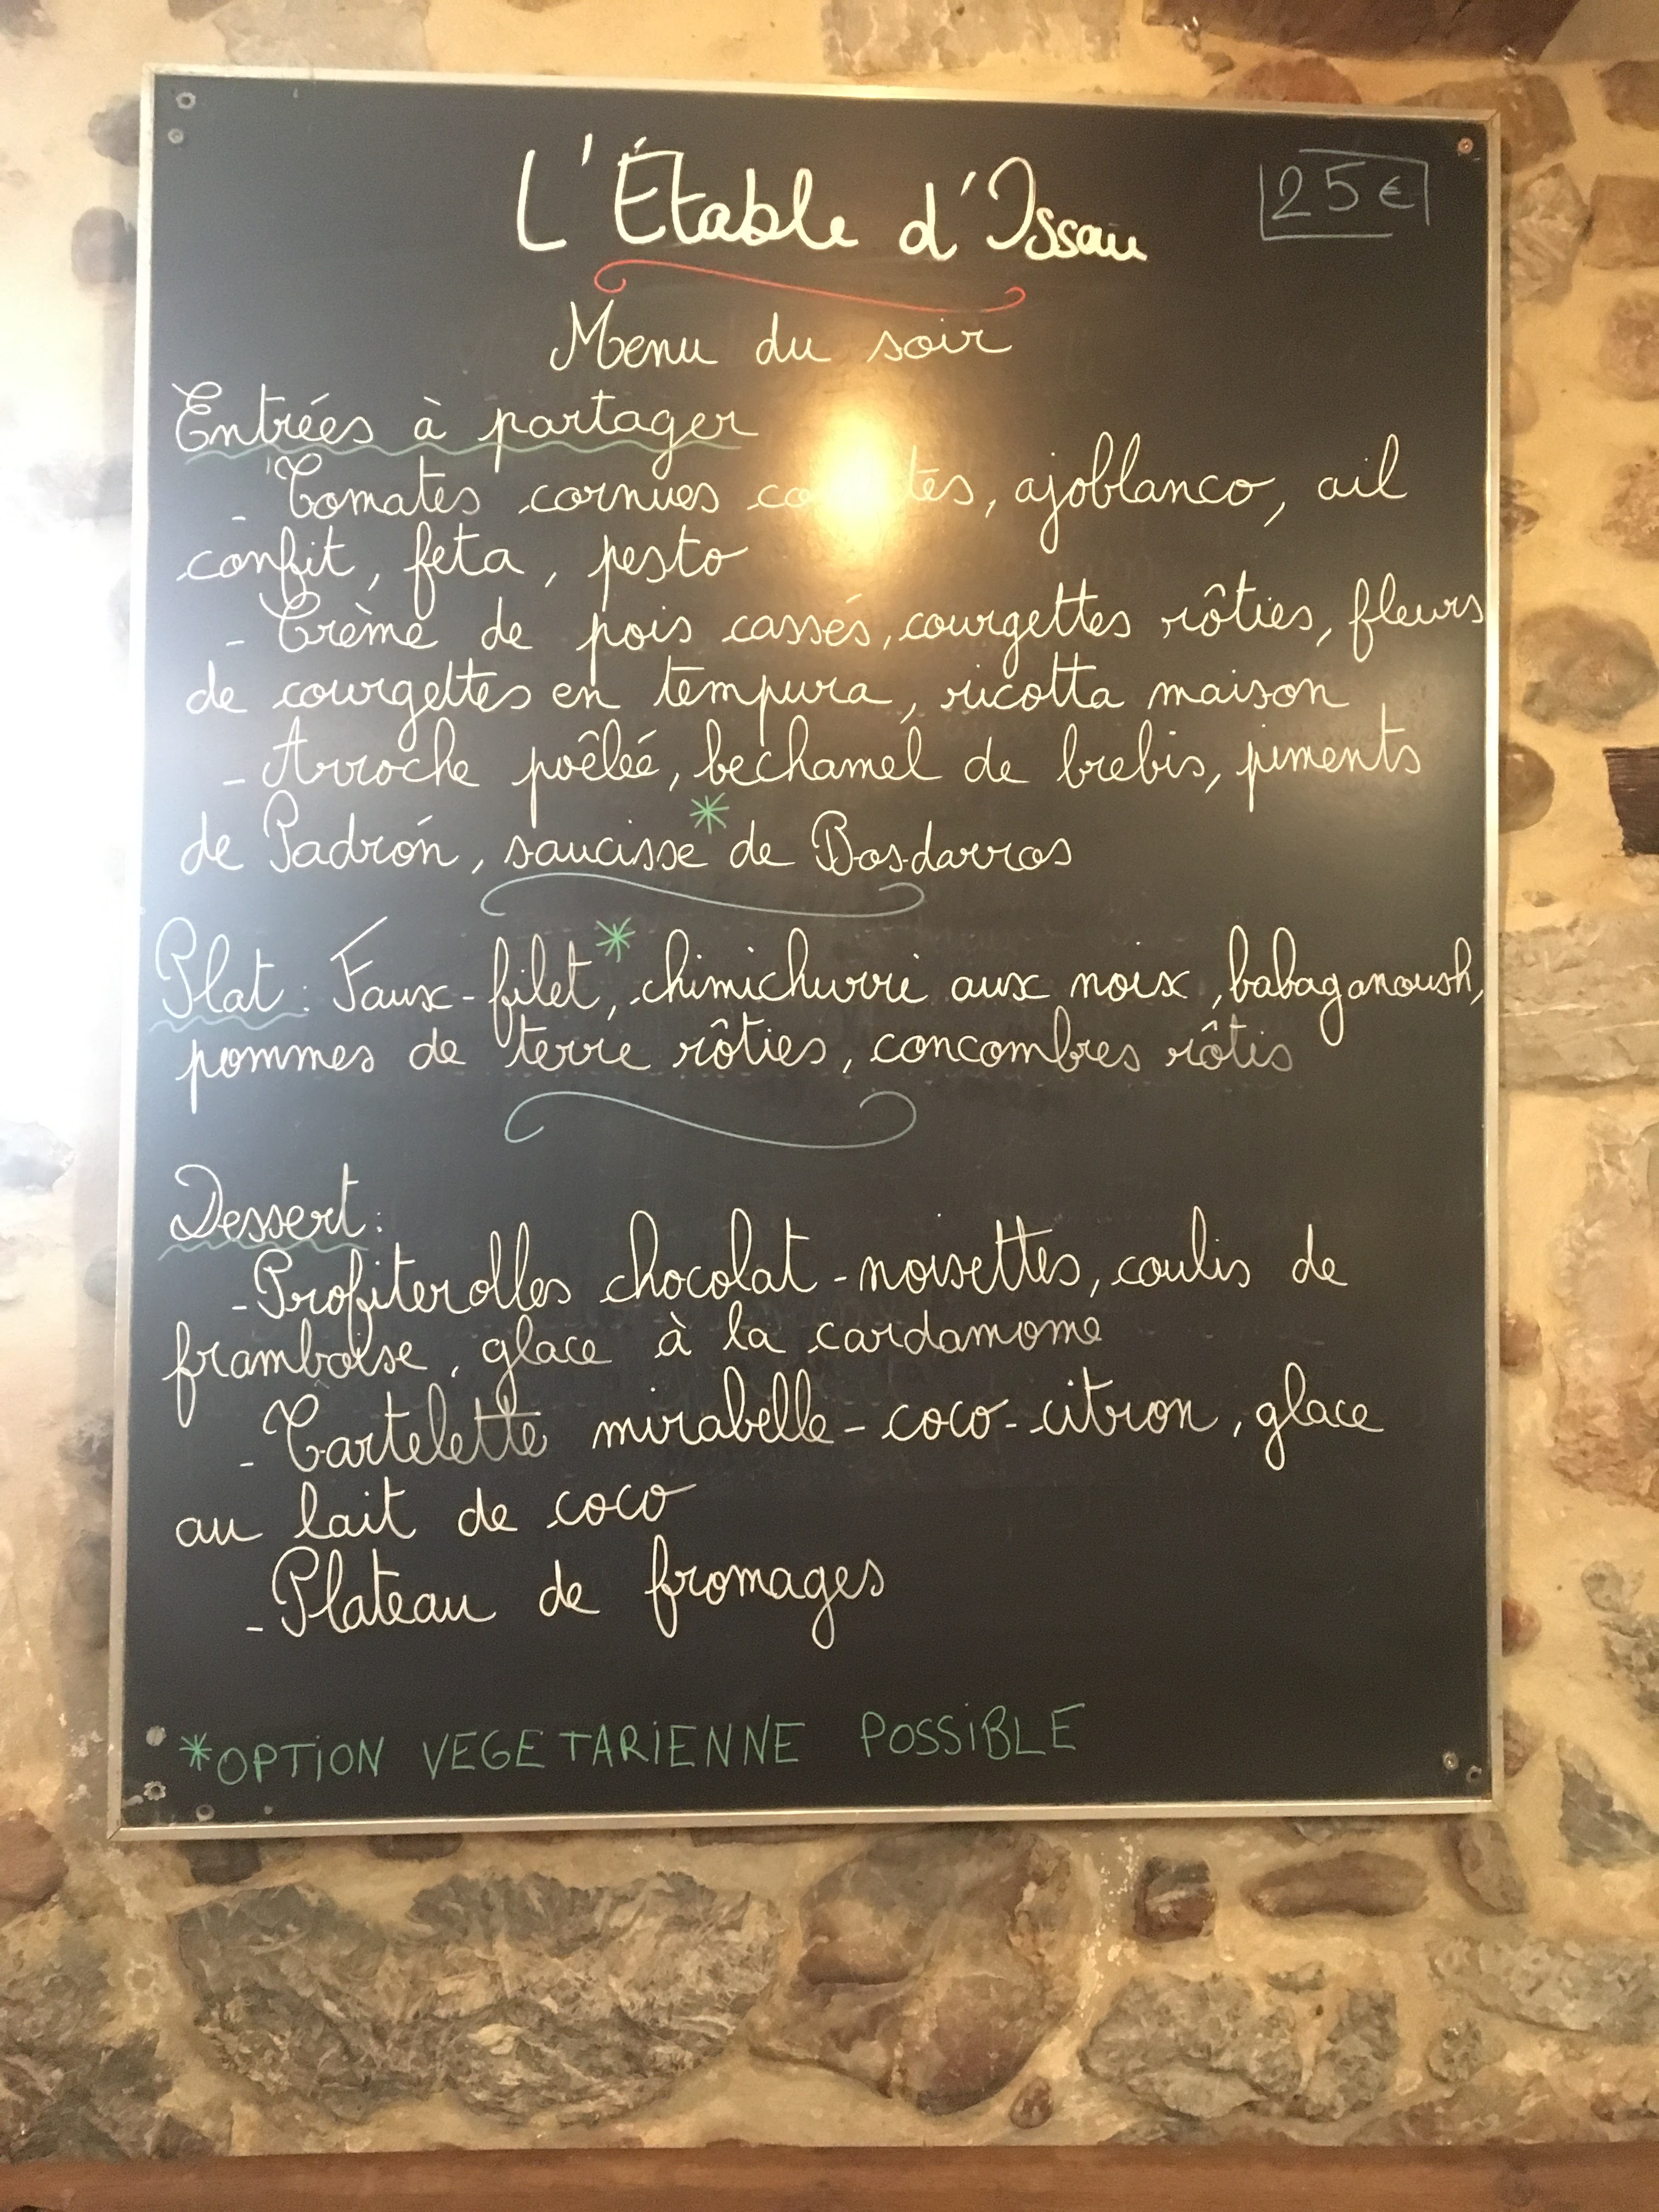 L'Étable d'Issau
25€
Menu du soir
Entrées à partager
- Tomates cornues, ajoblanco, ail
confit, feta, pesto
- Crème de pois cassés, courgettes rôties, fleurs
de courgettes en tempura, ricotta maison
- Arroche poêlée, bechamel de brebis, piments
de Padrón, saucisse* de Bosdarros
Plat : Faux-filet*, chimichurri aux noix, babaganoush,
pommes de terre rôties, concombres rôtis
Dessert :
- Profiterolles chocolat-noisettes, coulis de
framboise, glace à la cardamome
- Tartelette mirabelle-coco-citron, glace
au lait de coco
- Plateau de fromages
*OPTION VEGETARIENNE POSSIBLE